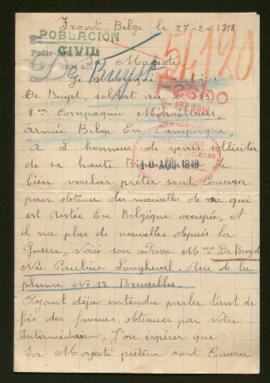 Front Belge le 27-2-1918
POBLACIÓN
CIVIL
54120
Sa Majesté
De Bruyst
De Bruyst, soldat au
8me Compagnie Mitrailleurs,
Armée Belge En Campagne,
a l'honneur de venir solliciter
de sa haute
10 AGO 1918
bien vouloir prêter sont Concours
pour obtenir des nouvelles de sa qui
est Restée En Belgique occupée, et
il na plus de nouvelles depuis la
Guerre, Voici son adresse Mme De Bruyst
Née Pauline Longheval. Rue de la
plume No 13 Bruxelles.
Ayant déja entendu parler tant de
fois des faveurs obtenues par votre
Intermédiaire, J'ose espérer que
Sa Majesté prêtera sont Concours